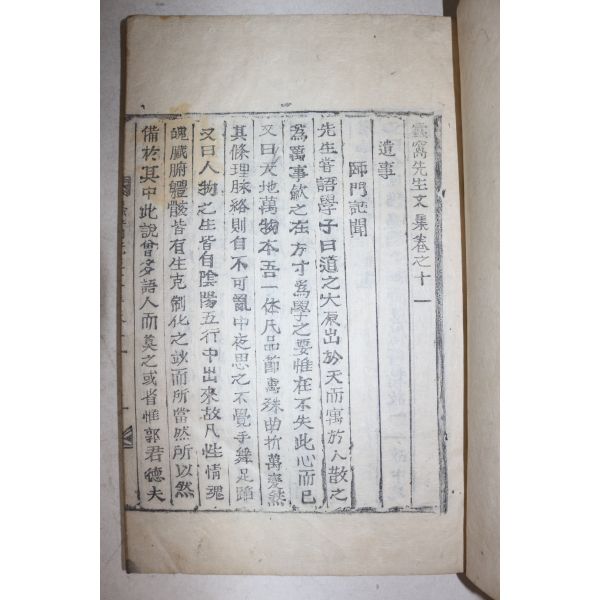 窩先生文集卷之十一
遺事
師門記聞
先生甞語學子曰道之大原出於天而寓於人散之
爲萬事歛之在方寸爲學之要惟在不失此心而已
又曰天地萬物本吾一体凡品節萬殊曲折萬変然
其條理脉絡則自不可亂中夜思之不覺手舞足蹈
又曰人物之生皆自陰陽五行中出來故凡性情魂
魄臟腑軆骸皆有生克制化之妙而所當然所以然
備於其中此說曾多語人而莫之或省惟郭君德夫